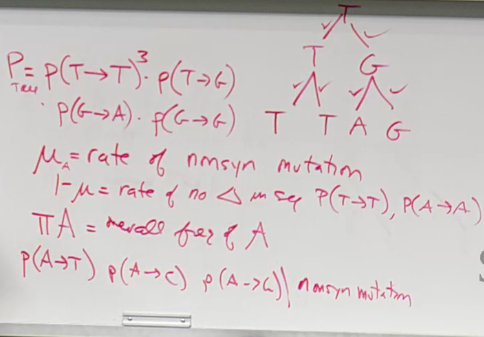 T
P = P(T→T)³ · P(T→G)
Tree
T G
· P(G→A) · P(G→G) T T A G
μA = rate of nonsyn mutation
1-μ = rate of no Δ in seq P(T→T), P(A→A)
πA = overall freq of A
P(A→T) P(A→C) P(A→G) | nonsyn mutation